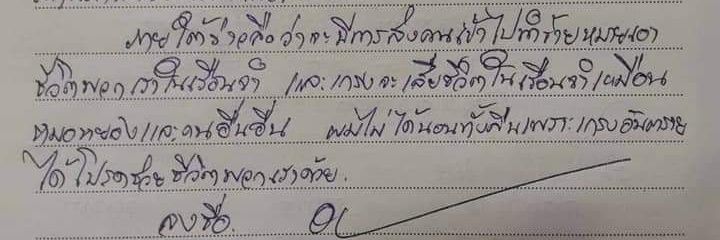 ภายใต้ข่าวลือว่าจะมีการส่งคนเข้าไปทำร้ายหมายเอา
ชีวิตพวกเราในเรือนจำ และเกรงจะเสียชีวิตในเรือนจำเหมือน
หมอหยองและคนอื่นอื่น ผมไม่ได้นอนทั้งคืนเพราะเกรงอันตราย
ได้โปรดช่วยชีวิตพวกเราด้วย.
ลงชื่อ.